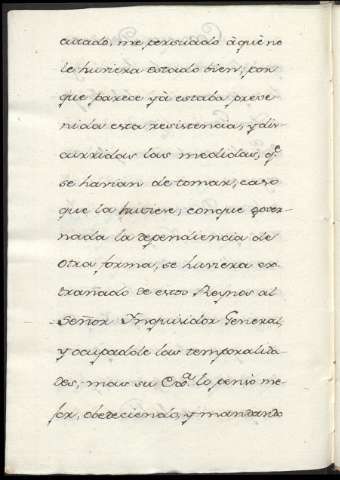 cutado, me persuado à què no
le huviera estado bien; por
que parece yà estaba preve
nida esta resistencia, y dis
curridas las medidas, q.e
se havian de tomar, caso
que la huviese, conque gover-
nada la dependencia de
otra forma, se huviera ex-
trañado de estos Reynos al
Señor Ynquisidor General,
y ocupadole las temporalida-
des; mas su Ex.a lo penso me-
jor, obedeciendo, y mandando